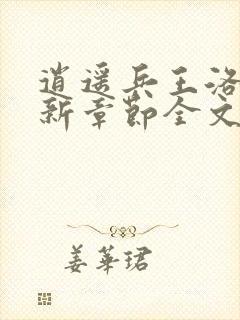 逍遥兵王洛
新章节全文
姜華珺